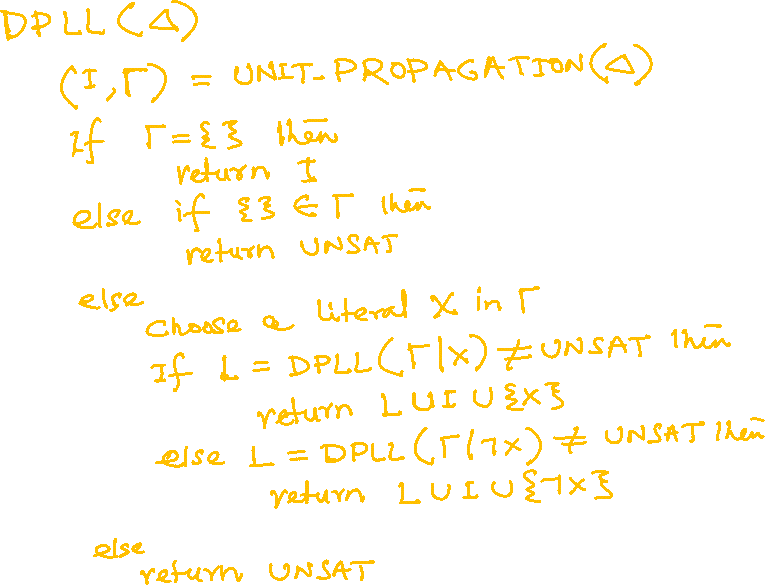 DPLL(Δ)
(I,Γ) = UNIT_PROPAGATION(Δ)
If Γ={} then
return I
else if {} ∈ Γ then
return UNSAT
else
choose a literal X in Γ
If L = DPLL(Γ|X) ≠ UNSAT then
return L U I U {X}
else L = DPLL(Γ|¬X) ≠ UNSAT then
return L U I U {¬X}
else
return UNSAT